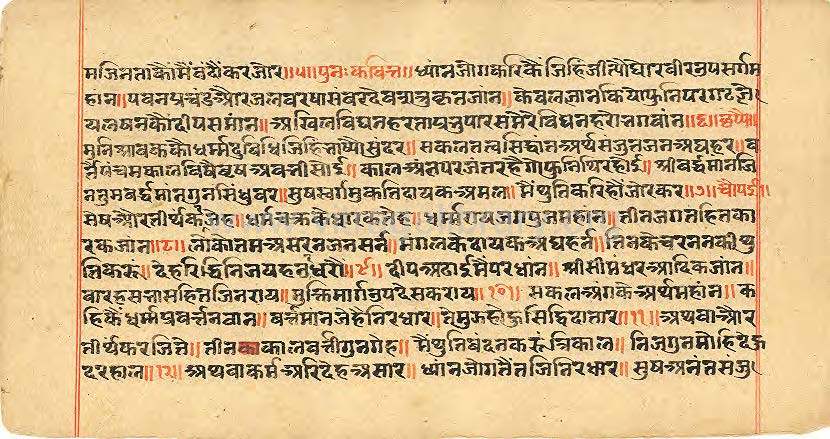 मजिनताकौं मैं वंदौं करजोर॥५॥पुनःकवित्त॥ध्यांनजोगकरिकैं जिहिं जीत्यौ घोरवीरउपसर्गम
हांन॥पवनप्रचंडऔरजलवरषा संवरदेवशत्रुकृतजांन॥केवलज्ञांन कियौ फुनि परगट
दीपसमांन॥अखिलविघनहरता विघनहरौ भगवांन॥६॥छप्पै॥
मुनि श्रावककौ धर्म्म दुविधि सुंदर॥सकलतत्वसिद्धांनअर्थसंजुत
पंचमकालविषै अवनी कालअंतपरजंतरहै फुनि थिरहोई॥श्रीवर्द्धमानजि
नतुमवर्द्धमांनगुनसिंधुवर॥सुषस्वर्गमुकतिदायकअमल॥मैंथुतिकरिहौं जोरकर॥७॥चौपई॥
सेषऔरतीर्थंकरजेह॥धर्मचक्रकेधारकतेह॥धर्मराय महांन॥तीनजगतहितका
रकजांन॥८॥लोकोतमअसरनजनसर्न॥मंगलकेदायकअघहर्न॥तिनकेचरननकीथु
तिकरूं॥देहरिद्धिनिज ॥९॥दीपअढाईमैपरधांन॥श्रीसीमंधरआदिकजांन॥
वारहसभासहितजिनराय॥मुक्तिमार्गउपदेसकराय॥१०॥सकलअंगकेअर्थमहांन॥क
हिकैंधर्म्मप्रवर्त्तनवांन॥वर्त्तमांनजेहैनिरधार॥ते सिद्धिदातार॥११॥अथवाऔर
तीर्थकरजिते॥तीनकालवर्त्तीगुन मैंथुतिवंदनकरूंत्रिकाल॥निजगुनमोहिदेऊ
दरहाल॥१२॥अथवाकर्मअरिदेहअसार॥ध्यांनजोगतैंनजिनिरधार॥सुषअनंतसंजु